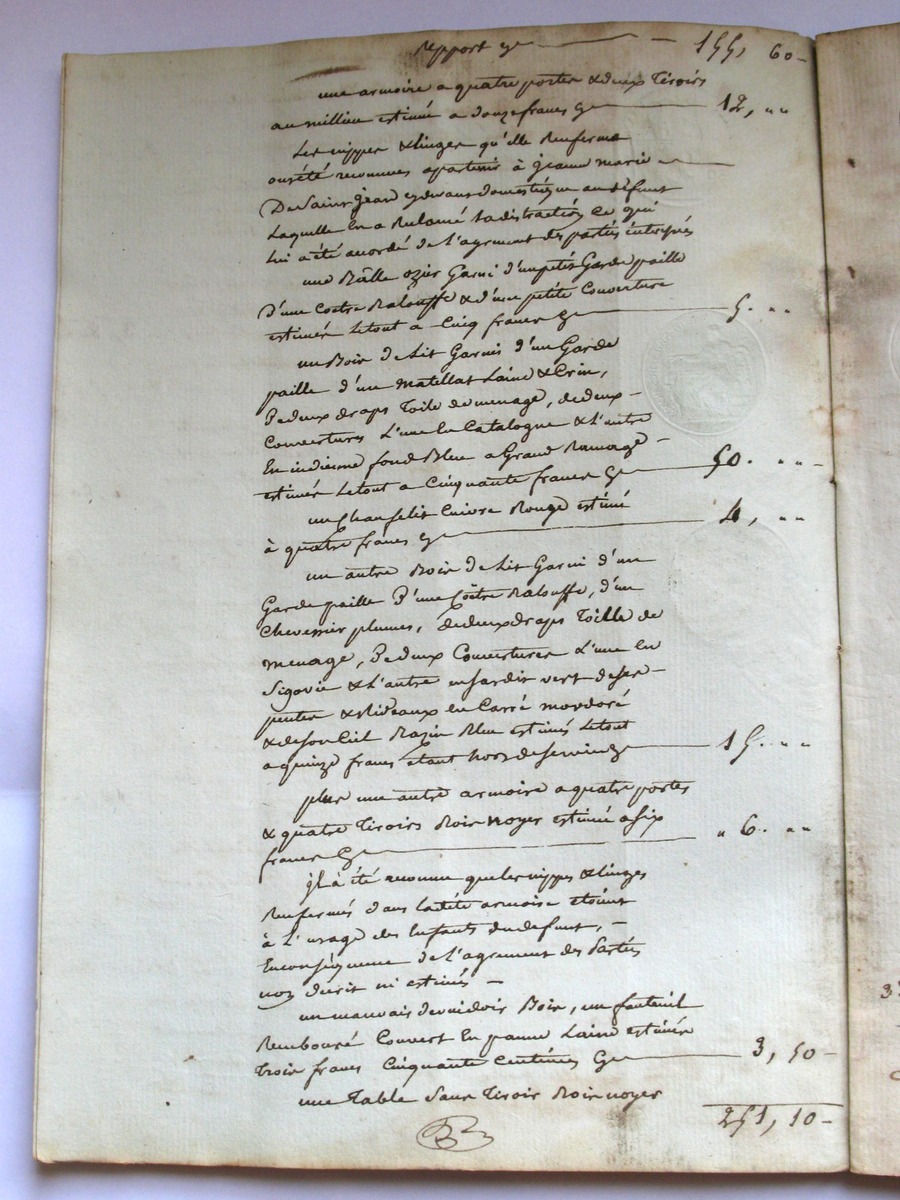 Report cy 155, 60
une armoire a quatre portes & deux tiroirs
au millieu estimé a douze francs cy 12, "
Les nippes & linges qu'elle Renferme
ont été reconnues apartenir à jeanne marie
De Saint jean cy devant domestique au défunt
Laquelle en a Reclamé la distraction ce qui
lui a été accordé de l'agrement des parties interessés
une Balle ozier Garni d'un petit Garde paille
D'une Coetre Balouffe & d'une petite Couverture
estimés Letout a Cinq francs cy 5. "
un Bois de Lit Garnis d'un Garde
paille d'une Matellat Laine & Crin,
De deux draps Toile de menage, de deux
Couvertures L'une en Catalogne & L'autre
En indienne fond Bleu a Grand Ramage
estimés Letout a Cinquante francs cy 50. "
un Chaufelit Cuivre Rouge estimé
à quatre francs cy 4, "
un autre Bois de Lit Garni d'un
Garde paille D'une Coëtre Balouffe, d'un
Chevessier plumes, de deux draps Toille de
menage, De deux Couvertures L'une en
Sigovie & L'autre en Sardis vert de ser-
& Rideaux en Carré mordoré
& de son Ciel Razin Bleu estimés Letout
a quinze francs etant hors de service cy 15. "
plus une autre armoire a quatre portes
& quatre Tiroirs Bois noyer estimé a six
francs cy " 6. "
jl à été reconnu que les nippes & linges
Renfermés dans ladite armoire etoient
à L'usage des Enfants du defunt,
En conséquence de l'agrement des Parties
non décrit ni estimés
un mauvais devidois Bois, un fauteuil
Rembouré Couvert En panne Laine estimés
Trois francs Cinquante Centimes cy 3, 50
une Table Sans Tiroir Bois noyer
251, 10